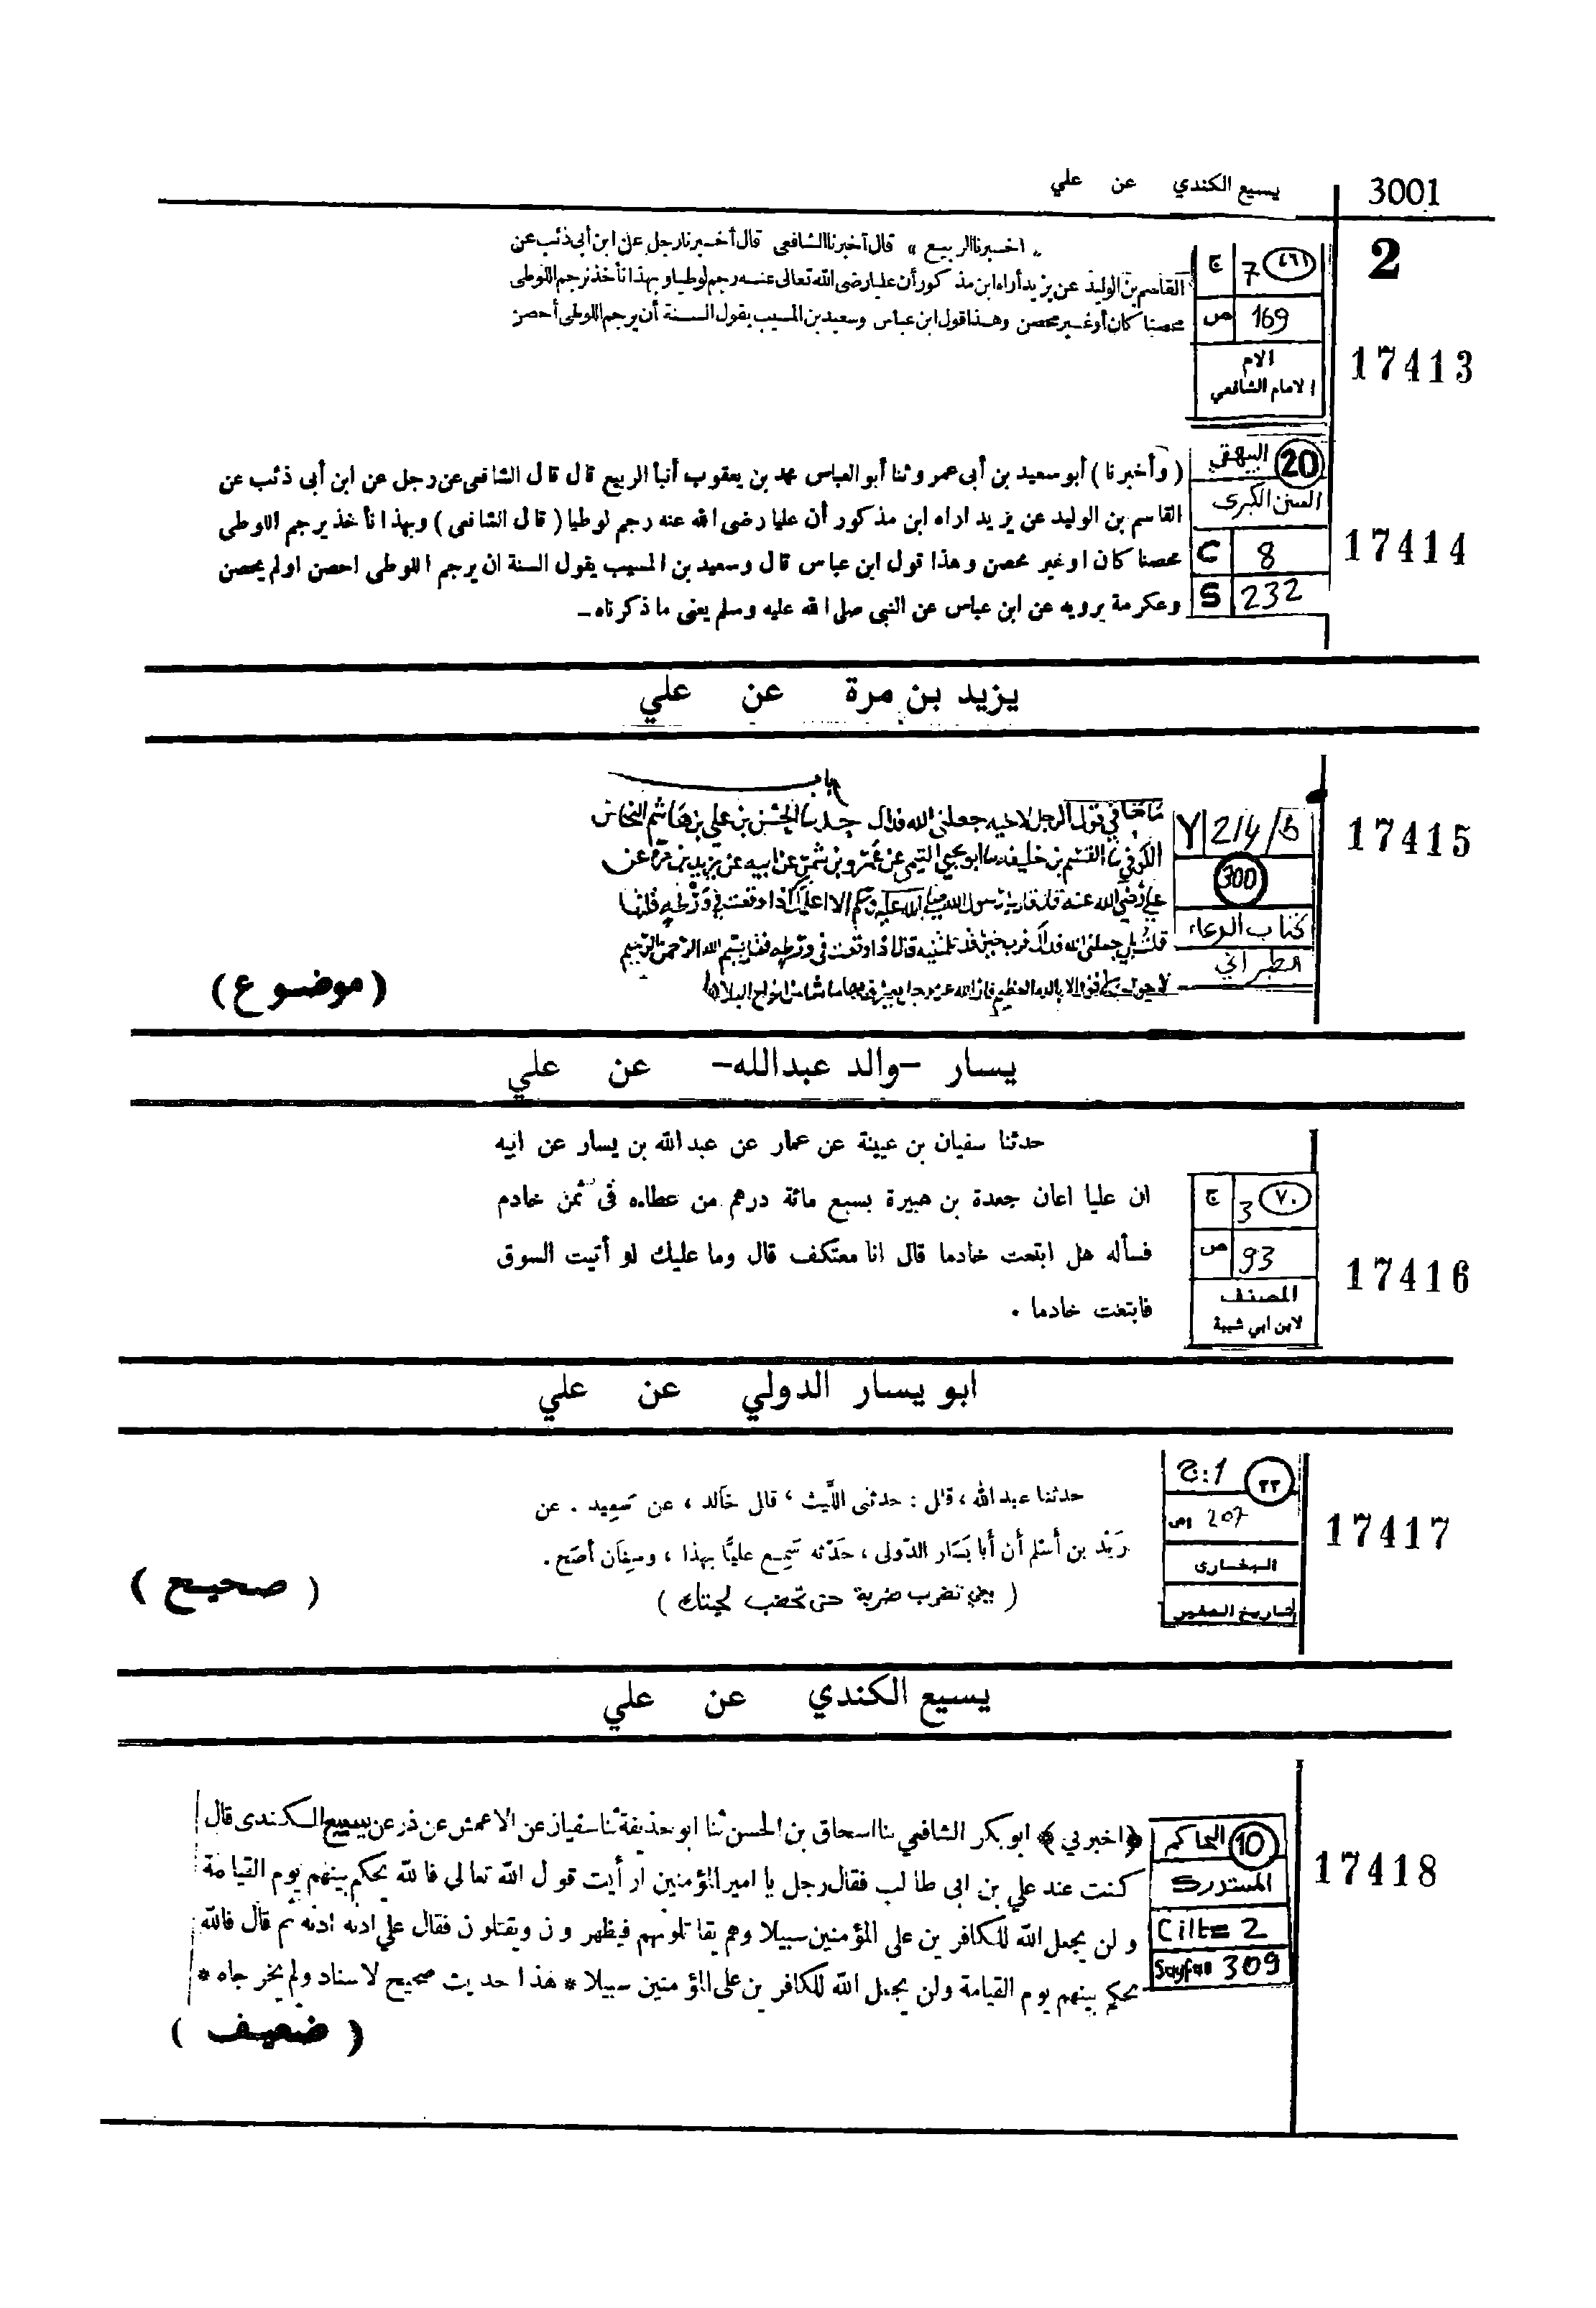 3001
يسيع الكندي عن علي
2
17413
٤٦١ 7 ج
169 ص
الام
الامام الشافعي
« اخبرنا الربيع » قال أخبرنا الشافعي قال أخبرنا رجل عن ابن أبي ذئب عن
القاسم بن الوليد عن يزيد أراه ابن مذكور أن عليا رضى الله تعالى عنه رجم لوطيا وبهذا نأخذ نرجم اللوطى
محصنا كان أو غير محصن وهذا قول ابن عباس وسعيد بن المسيب يقول السنة أن يرجم اللوطى أحصن
17414
20 البيهقي
السنن الكبرى
C 8
S 232
( وأخبرنا ) أبو سعيد بن أبى عمرو ثنا أبو العباس محمد بن يعقوب أنبأ الربيع قال قال الشافعى عن رجل عن ابن أبى ذئب عن
القاسم بن الوليد عن يزيد اراه ابن مذكور أن عليا رضى الله عنه رجم لوطيا ( قال الشافعى ) وبهذا نأخذ يرجم اللوطى
محصنا كان او غير محصن وهذا قول ابن عباس قال وسعيد بن المسيب يقول السنة ان يرجم اللوطى احصن اولم يحصن
وعكرمة يرويه عن ابن عباس عن النبى صلى الله عليه وسلم يعنى ما ذكرناه -
يزيد بن مرة عن علي
17415
Y 214/b
300
كتاب الدعاء
الطبراني
باب
ما جا في قول الرجل لاخيه جعلني الله فداك حدثنا الحسن بن علي بن هاشم النحاس
الكوفي القسم بن خليفه ابو يحيى التيمي عن عمرو بن شمر عن ابيه عن يزيد بن مرة عن
علي رضي الله عنه قال قال رسول الله صلى الله عليه وسلم الا اعلمك اذا وقعت في ورطه قلتها
قلت بلي جعلني الله فداك قال اذا وقعت في ورطه فقل بسم الله الرحمن الرحيم
لا حول ولا قوة الا بالله العظيم فان الله عز وجل يصرف بها ما شا من انواع البلا
(موضوع)
يسار -والد عبدالله- عن علي
17416
٧٠ 3 ج
93 ص
المصنف
لابن ابي شيبة
حدثنا سفيان بن عيينة عن عمار عن عبد الله بن يسار عن ابيه
ان عليا اعان جعدة بن هبيرة بسبع مائة درهم من عطاءه فى ثمن خادم
فسأله هل ابتعت خادما قال انا معتكف قال وما عليك لو أتيت السوق
فابتعت خادما .
ابو يسار الدولي عن علي
17417
٢٢ ج:1
207 ص
البخارى
التاريخ الصغير
حدثنا عبد الله ، قال : حدثنى الليث ، قال خالد ، عن سعيد . عن
زيد بن أسلم أن أبا يسار الدولى ، حدثه سمع عليا بهذا ، وسفيان أصح .
( يعني تضرب ضربة حتى تخضب لحيتك )
( صحيح )
يسيع الكندي عن علي
17418
10 الحاكم
المستدرك
Cilt= 2
Sayfa= 309
﴿اخبرني﴾ ابو بكر الشافعي ثنا اسحاق بن الحسن ثنا ابو حذيفة ثنا سفيان عن الاعمش عن ذر عن يسيع الكندى قال
كنت عند علي بن ابى طالب فقال رجل يا امير المؤمنين ارأيت قول الله تعالى فالله يحكم بينهم يوم القيامة
ولن يجعل الله للكافرين على المؤمنين سبيلا وهم يقاتلونهم فيظهرون ويقتلون فقال علي ادنه ادنه ثم قال فالله
يحكم بينهم يوم القيامة ولن يجعل الله للكافرين على المؤمنين سبيلا * هذا حديث صحيح الاسناد ولم يخرجاه *
( ضعيف )